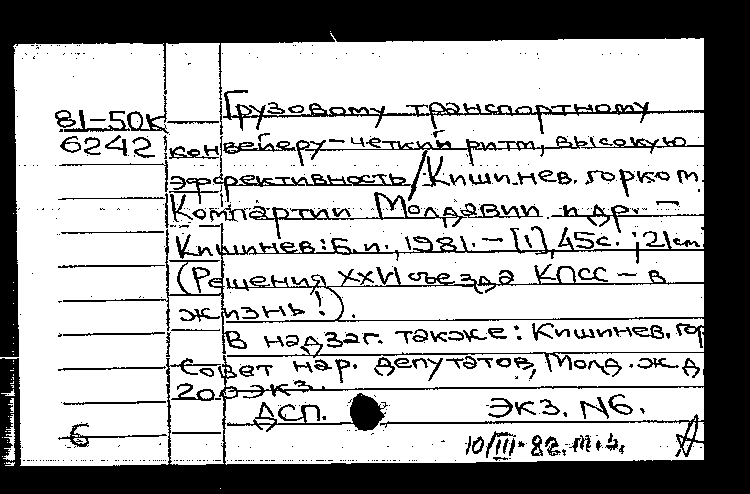 81-50к
6242
Грузовому транспортному
конвейеру-четкий ритм, высокую
эффективность / Кишинев. горком
Компартии Молдавии и др. –
Кишинев: Б.и., 1981. – [1], 45с. ; 21см.
(Решения XXVI съезда КПСС – в
жизнь!).
В надзаг. также: Кишинев. гор
Совет нар. депутатов, Молд. ж.д.
200экз.
ДСП. ЭКЗ. N6.
6
10/III-82.